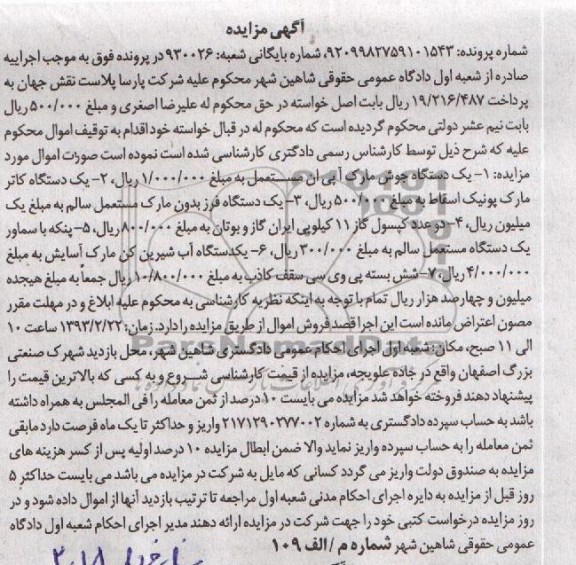 آگهی مزایده
شماره پرونده: ۹۲۰۹۹۸۲۷۵۹۱۰۱۵۴۳، شماره بایگانی شعبه: ۹۳۰۰۲۶ در پرونده فوق به موجب اجراییه
صادره از شعبه اول دادگاه عمومی حقوقی شاهین شهر محکوم علیه شرکت پارسا پلاست نقش جهان به
پرداخت ۱۹/۲۱۶/۴۸۷ ریال بابت اصل خواسته در حق محکوم له علیرضا اصغری و مبلغ ۵۰۰/۰۰۰ ریال
بابت نیم عشر دولتی محکوم گردیده است که محکوم له در قبال خواسته خود اقدام به توقیف اموال محکوم
علیه که شرح ذیل توسط کارشناس رسمی دادگتری کارشناسی شده است نموده است صورت اموال مورد
مزایده: ۱- یک دستگاه جوش مارک آپی ان مستعمل به مبلغ ۱/۰۰۰/۰۰۰ ریال، ۲- یک دستگاه کاتر
مارک پونیک اسقاط به مبلغ ۵۰۰/۰۰۰ ریال، ۳- یک دستگاه فرز بدون مارک مستعمل سالم به مبلغ یک
میلیون ریال، ۴- دو عدد کپسول گاز ۱۱ کیلویی ایران گاز و بوتان به مبلغ ۸۰۰/۰۰۰ ریال، ۵- پنکه با سماور
یک دستگاه مستعمل سالم به مبلغ ۳۰۰/۰۰۰ ریال، ۶- یکدستگاه آب شیرین کن مارک آسایش به مبلغ
۴/۰۰۰/۰۰۰ ریال، ۷- شش بسته پی وی سی سقف کاذب به مبلغ ۱۰/۸۰۰/۰۰۰ ریال جمعاً به مبلغ هیجده
میلیون و چهارصد هزار ریال تمام با توجه به اینکه نظریه کارشناسی به محکوم علیه ابلاغ و در مهلت مقرر
مصون اعتراض مانده است این اجرا قصد فروش اموال از طریق مزایده را دارد. زمان: ۱۳۹۳/۲/۲۲ ساعت ۱۰
الی ۱۱ صبح، مکان: شعبه اول اجرای احکام عمومی دادگستری شاهین شهر، محل بازدید شهرک صنعتی
بزرگ اصفهان واقع در جاده علویجه، مزایده از قیمت کارشناسی شروع و به کسی که بالاترین قیمت را
پیشنهاد دهند فروخته خواهد شد مزایده می بایست ۱۰ درصد از ثمن معامله را فی المجلس به همراه داشته
باشد به حساب سپرده دادگستری به شماره ۲۱۷۱۲۹۰۲۷۷۰۰۲ واریز و حداکثر تا یک ماه فرصت دارد مابقی
ثمن معامله را به حساب سپرده واریز نماید والا ضمن ابطال مزایده ۱۰ درصد اولیه پس از کسر هزینه های
مزایده به صندوق دولت واریز می گردد کسانی که مایل به شرکت در مزایده می باشد می بایست حداکثر ۵
روز قبل از مزایده به دایره اجرای احکام مدنی شعبه اول مراجعه تا ترتیب بازدید آنها از اموال داده شود و در
روز مزایده درخواست کتبی خود را جهت شرکت در مزایده ارائه دهند مدیر اجرای احکام شعبه اول دادگاه
عمومی حقوقی شاهین شهر شماره م / الف ۱۰۹
ParsNamadData